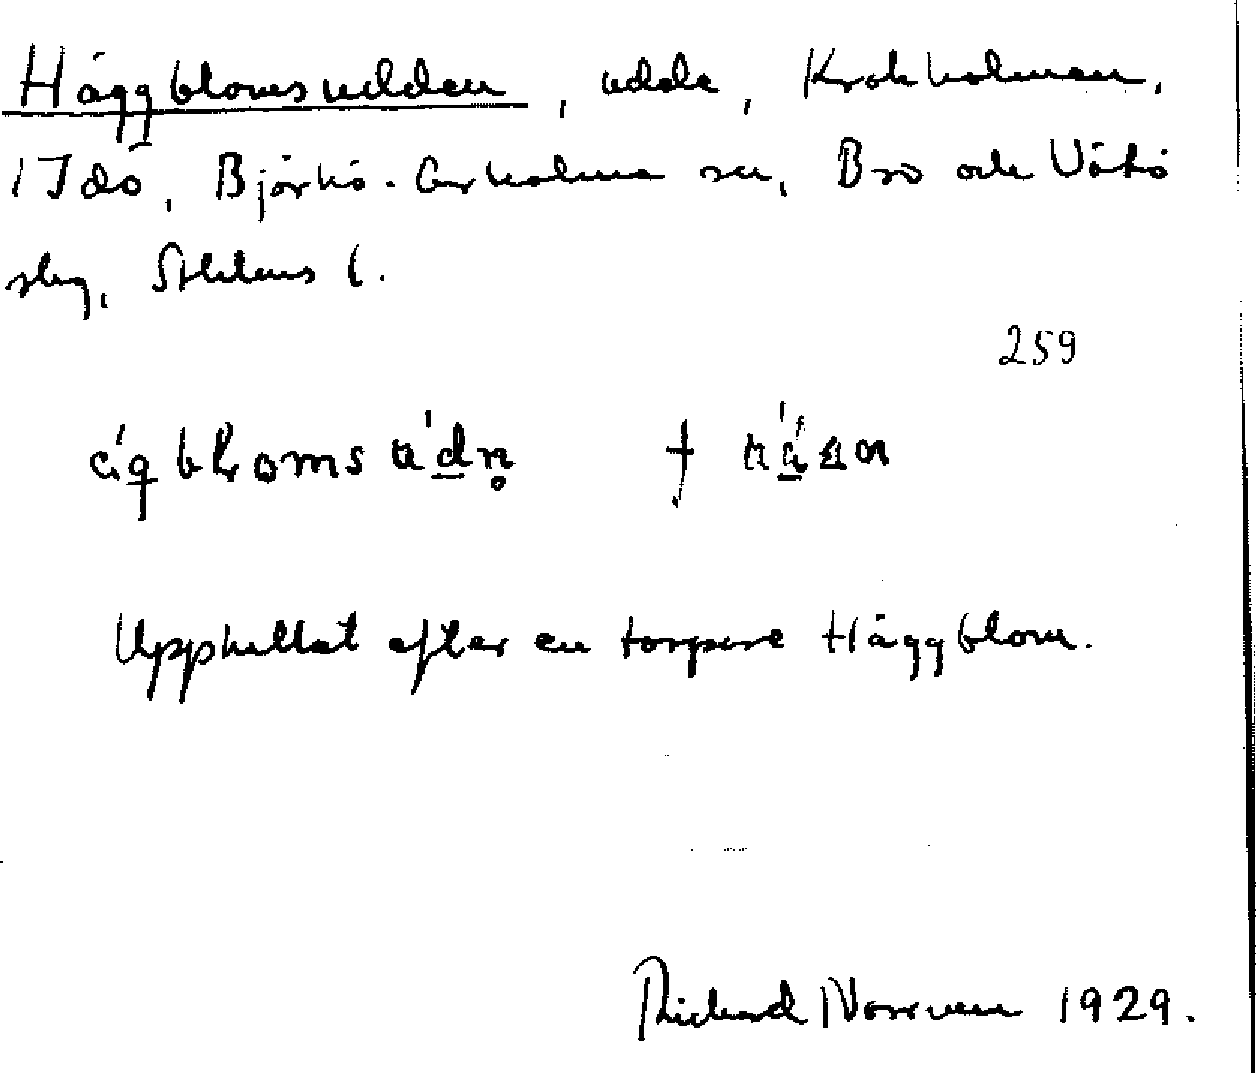 Häggblomsudden, udde, Krokholmen,
1 Idö, Björkö-Arholma sn, Bro och Vätö
skg, Sthlms l.
259
Upphallat efter en torpare Häggblom.
Richard Norrman 1929.